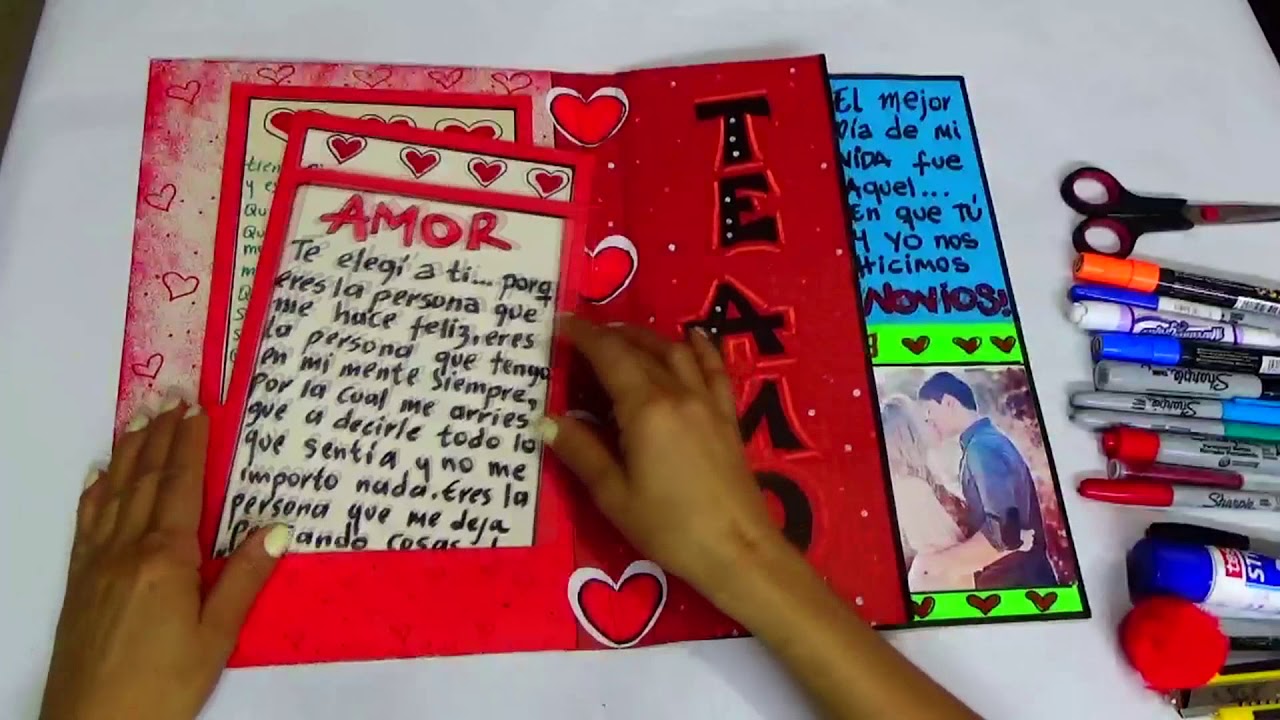 AMOR
Te elegí a ti... porq
eres la persona que
me hace feliz, eres
la persona que tengo
en mi mente siempre,
por la cual me arries
gue a decirle todo lo
que sentía y no me
importo nada. Eres la
persona que me deja
cosas
tien
y e
Qu
Qu
me
TE AMO
El mejor
Día de mi
VIDA fue
Aquel...
En que TÚ
Y YO nos
Hicimos
NOVIOS!
Sharpie
Sharpie
Sharpie